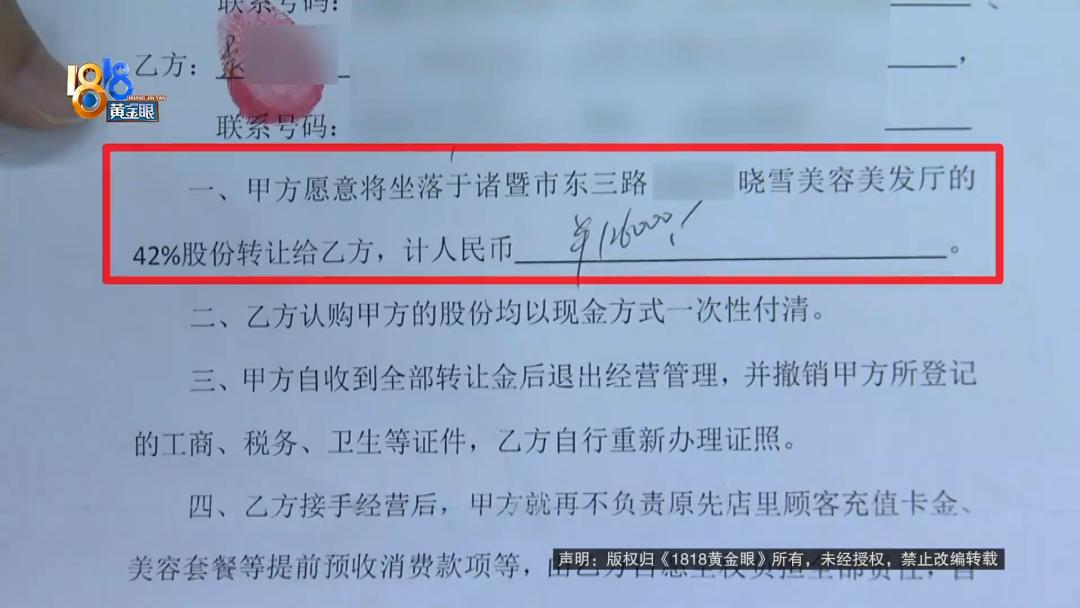 联系号码:
1818
HUANG JIN YAN
黄金眼
乙方:
,
联系号码:
一、甲方愿意将坐落于诸暨市东三路 晓雪美容美发厅的
42%股份转让给乙方，计人民币 ¥126000 。
二、乙方认购甲方的股份均以现金方式一次性付清。
三、甲方自收到全部转让金后退出经营管理，并撤销甲方所登记
的工商、税务、卫生等证件，乙方自行重新办理证照。
四、乙方接手经营后，甲方就再不负责原先店里顾客充值卡金、
美容套餐等提前预收消费款项等，
声明：版权归《1818黄金眼》所有，未经授权，禁止改编转载